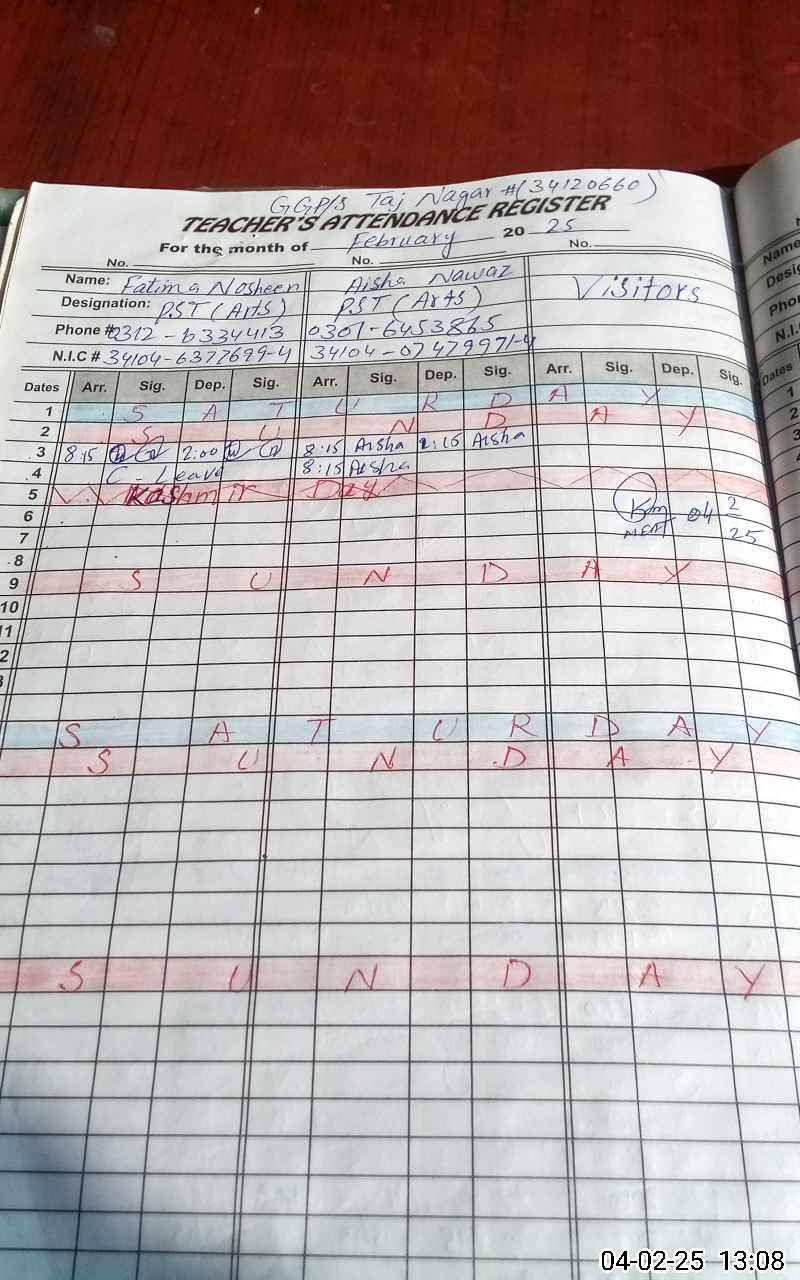 GGP/S Taj Nagar #(34120660)
TEACHER'S ATTENDANCE REGISTER
For the month of February 2025
No. No. No.
Name: Fatima Nosheen Aisha Nawaz Visitors
Designation: P.ST (Arts) P.ST (Arts)
Phone # 0312-6334413 0301-6453865
N.I.C # 34104-6377699-4 34104-07479971-4
Dates Arr. Sig. Dep. Sig. Arr. Sig. Dep. Sig. Arr. Sig. Dep. Sig.
1 S A T U R D A Y
2 S U N D A Y
3 8:15 2:00 8:15 Aisha Aisha
4 C-Leave 8:15 Aisha
5 Kashmir Day
6 04 2
7 25
8
9 S U N D A Y
10
11
2
3
S A T U R D A Y
S U N D A Y
S U N D A Y
Name
Desig
Phon
N.I.
Dates
1
2
3
04-02-25 13:08